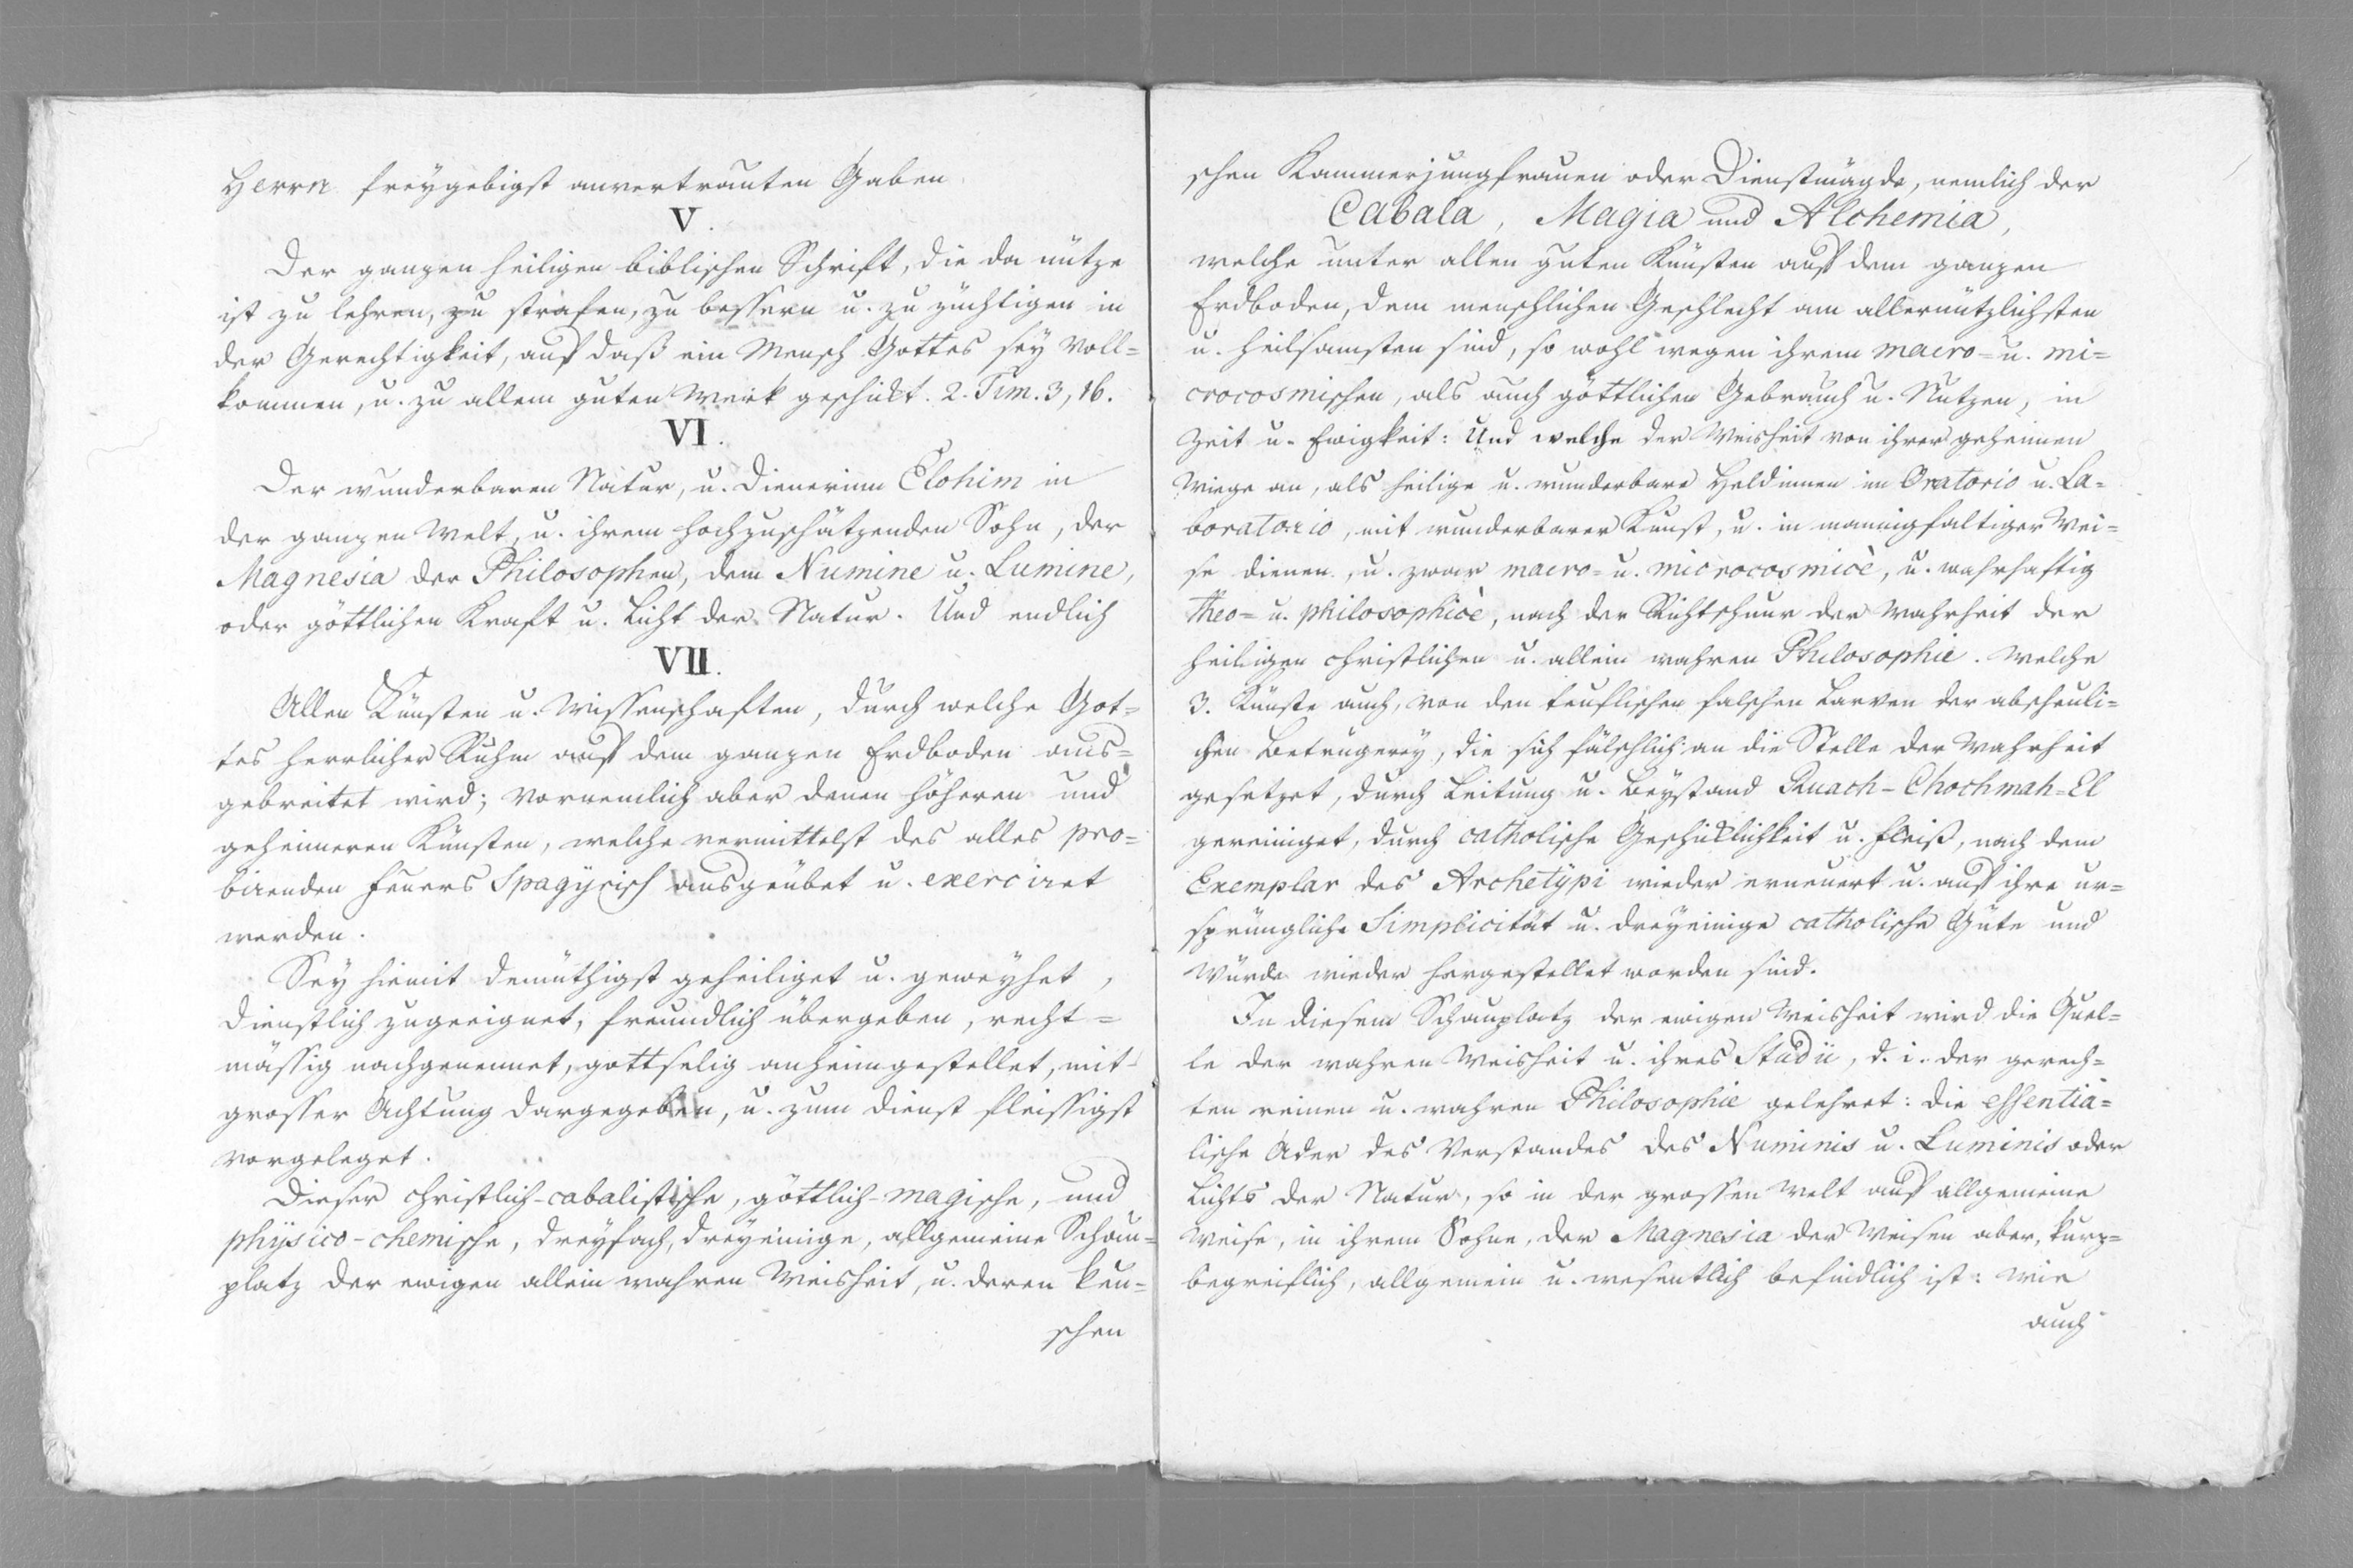 Herrn freygebigst anvertrauten Gaben.
V.
Der ganzen heiligen biblischen Schrift, die da nütze
ist zu lehren, zu strafen, zu bessern u. zu züchtigen in
der Gerechtigkeit, auf daß ein Mensch Gottes sey voll=
kommen, u. zu allem guten Werk geschickt. 2. Tim. 3, 16.
VI.
Der wunderbaren Natur, u. Dienerinn Elohim in
der ganzen Welt, u. ihrem hochzuschätzenden Sohn, der
Magnesia der Philosophen, dem Numine u. Lumine,
oder göttlichen Kraft u. Licht der Natur. Und endlich
VII.
Allen Künsten u. Wissenschaften, durch welche Got=
tes herrlicher Ruhm auf dem ganzen Erdboden aus=
gebreitet wird; vornemlich aber denen höheren und
geheimeren Künsten, welche vermittelst des alles pro=
birenden Feuers Spagyrisch ausgeübet u. exerciret
werden.
Sey hiemit demüthigst geheiliget u. geweyhet,
dienstlich zugeeignet, freundlich übergeben, recht=
mässig nachgenennet, gottselig anheimgestellet, mit
grosser Achtung dargegeben, u. zum Dienst fleissigst
vorgeleget.
Dieser christlich-cabalistische, göttlich-magische, und
physico-chemische, dreyfach, dreyeinige, allgemeine Schau=
platz der ewigen allein wahren Weisheit, u. deren keu=
schen
schen Kammerjungfrauen oder Dienstmägde, nemlich der
Cabala, Magia und Alchemia,
welche unter allen guten Künsten auf dem ganzen
Erdboden, dem menschlichen Geschlecht am allernützlichsten
u. heilsamsten sind, so wohl wegen ihrem macro= u. mi=
crocosmischen, als auch göttlichen Gebrauch u. Nutzen, in
Zeit u. Ewigkeit: Und welche der Weisheit von ihrer geheimen
Wiege an, als heilige u. wunderbare Heldinnen im Oratorio u. La=
boratorio, mit wunderbarer Kunst, u. in mannigfaltiger Wei=
se dienen, u. zwar macro= u. microcosmicè, u. wahrhaftig
theo= u. philosophicè, nach der Richtschnur der Wahrheit der
heiligen christlichen u. allein wahren Philosophie. Welche
3. Künste auch, von den teuflischen falschen Larven der abscheuli=
chen Betrügerey, die sich fälschlich an die Stelle der Wahrheit
gesetzet, durch Leitung u. Beystand Ruach-Chochmah=El
gereiniget, durch catholische Geschicklichkeit u. Fleiß, nach dem
Exemplar des Archetypi wieder erneuert u. auf ihre ur=
sprüngliche Simplicität u. dreyeinige catholische Güte und
Würde wieder hergestellet worden sind.
In diesem Schauplatz der ewigen Weisheit wird die Quel=
le der wahren Weisheit u. ihres Studii, d. i. der gerech=
ten reinen u. wahren Philosophie gelehret: die essentia=
lische Ader des Verstandes des Numinis u. Luminis oder
Lichts der Natur, so in der grossen Welt auf allgemeine
Weise, in ihrem Sohne, der Magnesia der Weisen aber, kurz=
begreiflich, allgemein u. wesentlich befindlich ist: wie
auch